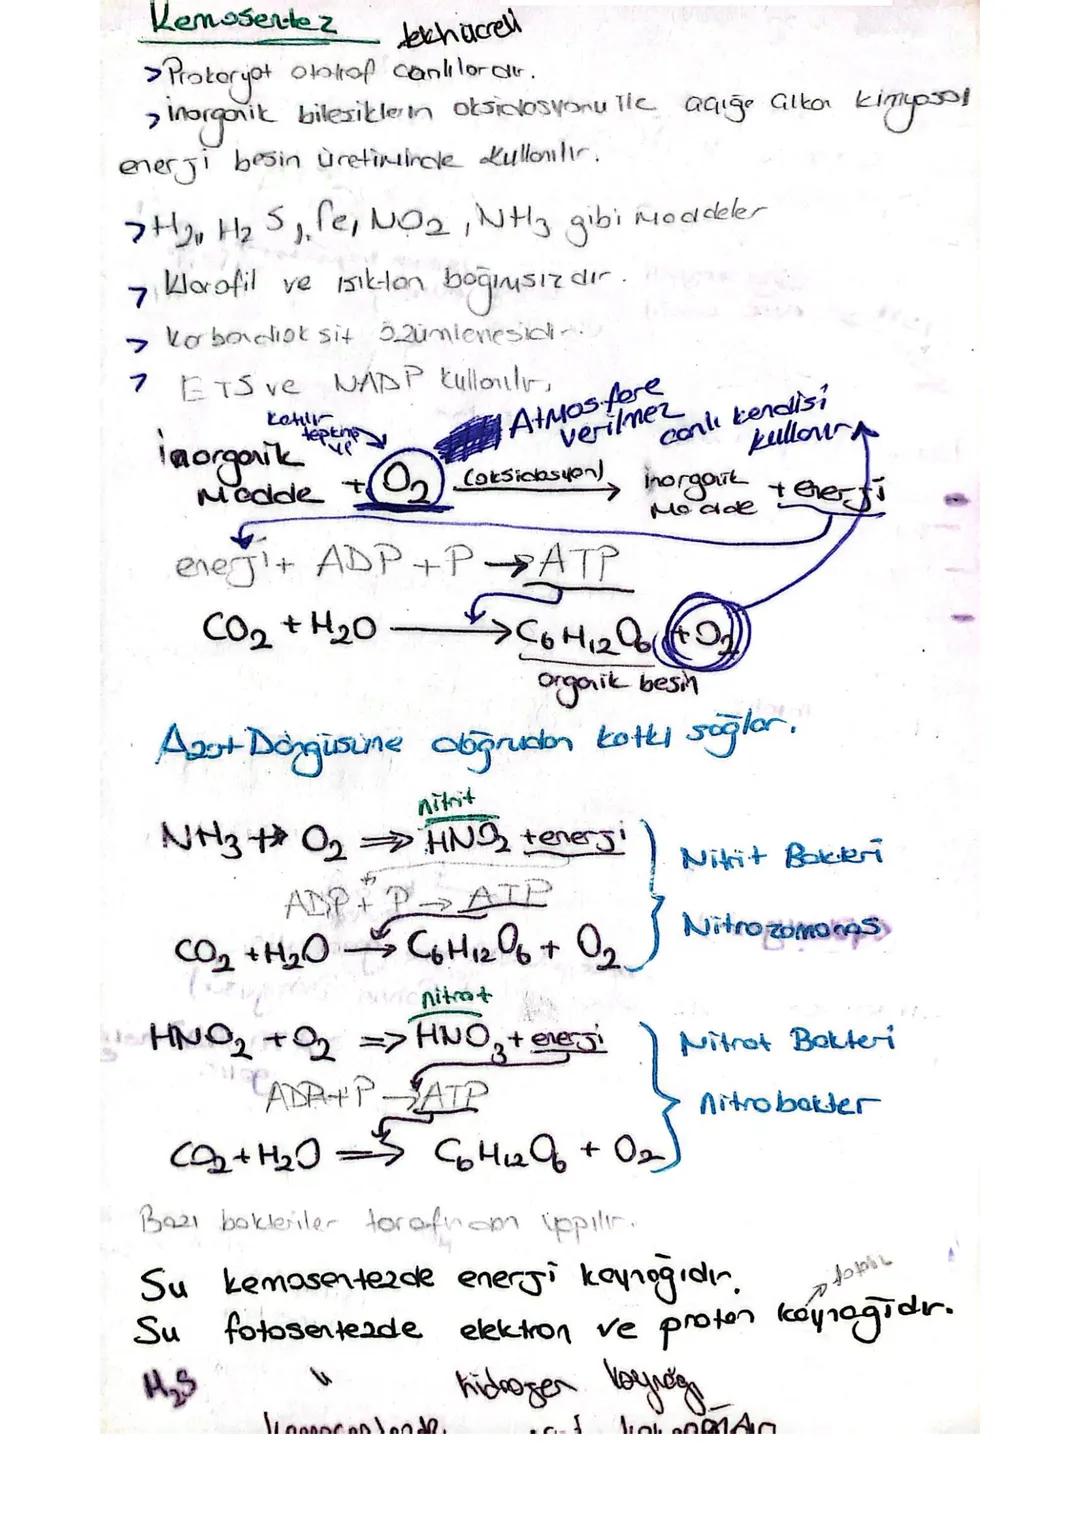 Kemosentez tekhücreli
> Prokaryot ototrof canlılardır.
> inorganik bileşiklerin oksidasyonu ile açığa çıkan kimyasal
enerji besin üretiminde kullanılır.
> H2, H2S, Fe, NO2, NH3 gibi maddeler
> Klorofil ve ışıktan bağımsızdır.
> karbondioksit özümlemesidir.
> ETS ve NADP kullanılır.
katılır
tepkimeye
Atmosfere
verilmez
canlı kendisi
kullanır
inorganik
Madde + O2 (oksidasyon) → inorganik
Madde + enerji
enerji + ADP + P → ATP
CO2 + H2O → C6H12O6 + O2
organik besin
Azot Döngüsüne doğrudan katkı sağlar.
nitrit
NH3 + O2 ⇒ HNO2 + enerji
Nitrit Bakteri
ADP + P → ATP
Nitrozomonas
CO2 + H2O → C6H12O6 + O2
nitrat
HNO2 + O2 ⇒ HNO3 + enerji
Nitrat Bakteri
ADP + P → ATP
nitrobakter
CO2 + H2O ⇒ C6H12O6 + O2
Bazı bakteriler tarafından yapılır.
Su kemosentezde enerji kaynağıdır.
Su fotosentezde elektron ve proton kaynağıdır.
H2S " hidrojen kaynağı